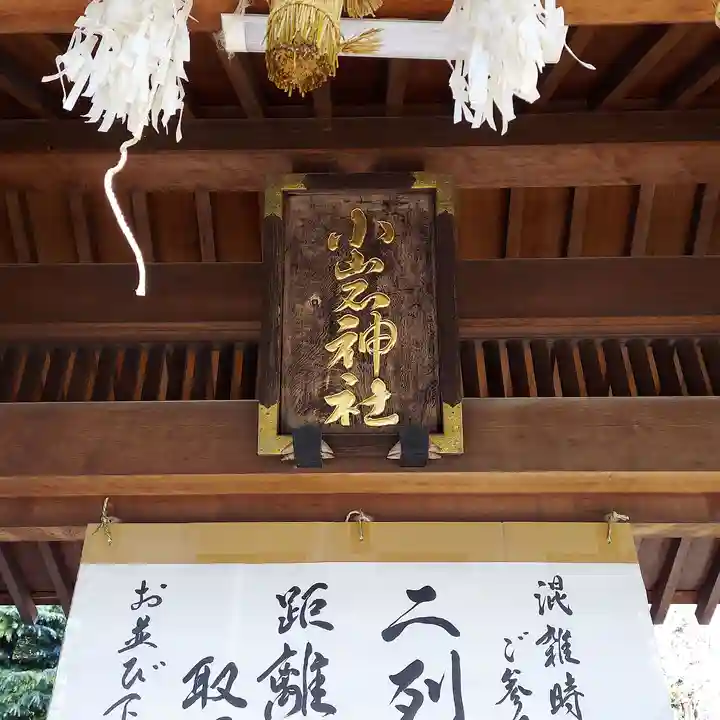 小岩神社
混雑時
ご参
二列
距離
取
お並び下